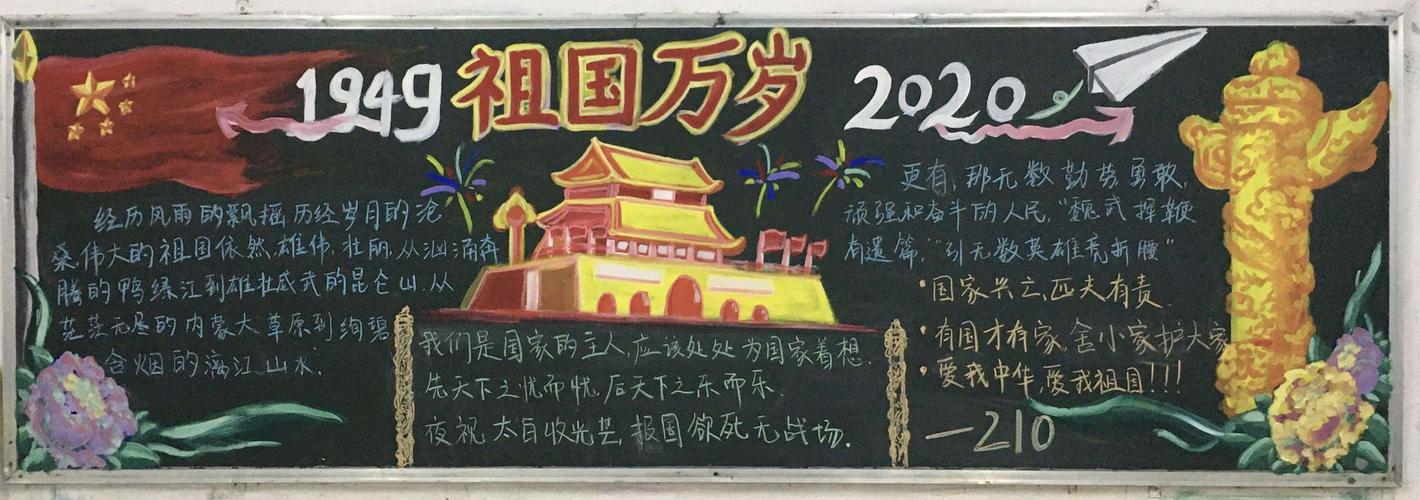 1949 祖国万岁 2020
经历风雨的飘摇,历经岁月的沧
桑,伟大的祖国依然,雄伟,壮丽,从汹涌奔
腾的鸭绿江到雄壮威武的昆仑山,从
茫茫无尽的内蒙大草原到绚碧
含烟的漓江山水.
我们是国家的主人,应该处处为国家着想.
先天下之忧而忧,后天下之乐而乐.
夜视太白收光芒,报国欲死无战场.
更有,那无数勤劳勇敢,
顽强和奋斗的人民,"魏武挥鞭
有遗篇,""引无数英雄竞折腰"
·国家兴亡,匹夫有责.
·有国才有家,舍小家护大家
·爱我中华,爱我祖国!!!
—210